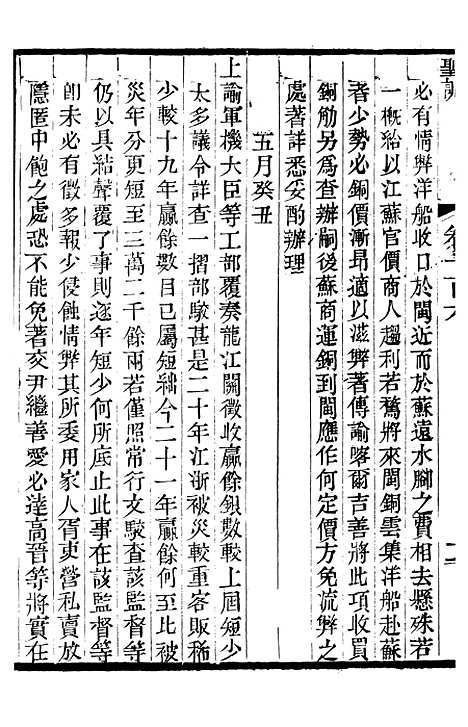 聖訓
卷二百六
必有情弊洋船收口於閩近而於蘇遠水腳之費相去懸殊若
一概給以江蘇官價商人趨利若鶩將來閩銅雲集洋船赴蘇
者少勢必銅價漸昂適以滋弊著傳諭喀爾吉善將此項收買
銅觔另為查辦嗣後蘇商運銅到閩應作何定價方免流弊之
處著詳悉妥酌辦理
五月癸丑
上諭軍機大臣等工部覆奏龍江關徵收贏餘銀數較上屆短少
太多議令詳查一摺部駁甚是二十年江浙被災較重客販稀
少較十九年贏餘數目已屬短絀今二十一年贏餘何至比被
災年分更短至三萬二千餘兩若僅照常行文駁查該監督等
仍以具結聲覆了事則逐年短少何所底止此事在該監督等
卽未必有徵多報少侵蝕情弊其所委用家人胥吏營私賣放
隱匿中飽之處恐不能免著交尹繼善愛必達高晉等將實在